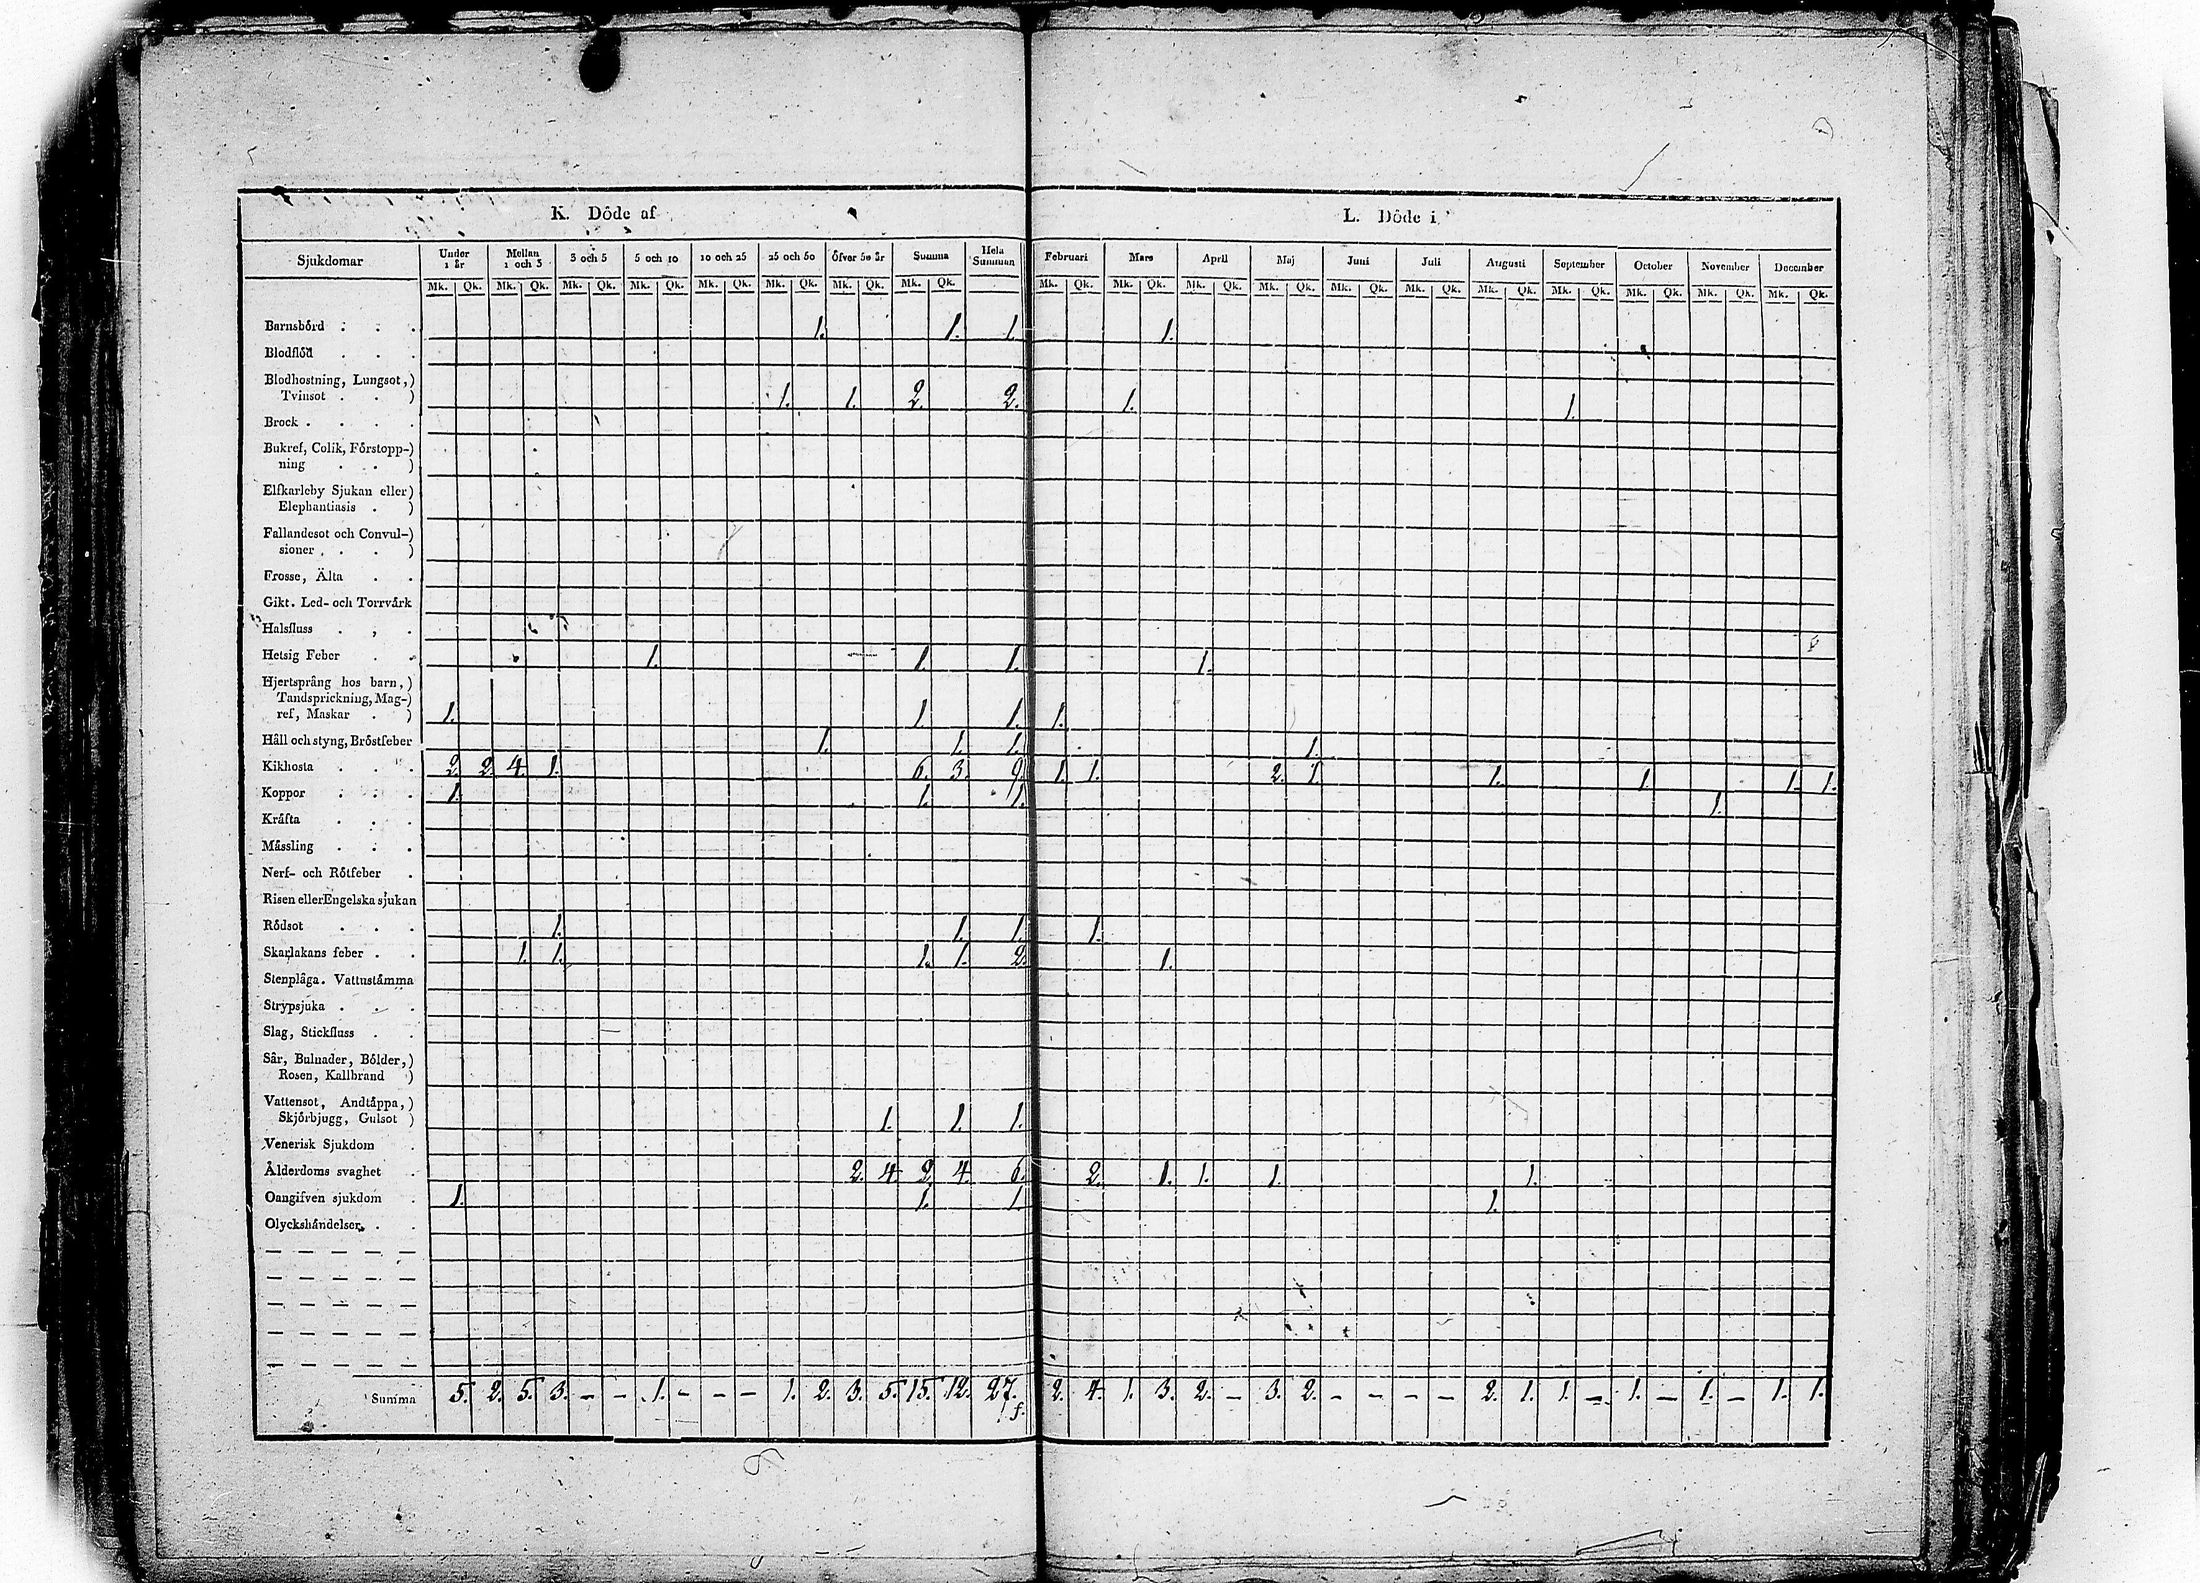 K. Döde af
L. Döde i
Sjukdomar Under 1 år Mellan 1 och 3 3 och 5 5 och 10 10 och 25 25 och 50 Öfver 50 år Summa Hela Summan Februari Mars April Maj Juni Juli Augusti September October November December
Mk. Qk. Mk. Qk. Mk. Qk. Mk. Qk. Mk. Qk. Mk. Qk. Mk. Qk. Mk. Qk. Mk. Qk. Mk. Qk. Mk. Qk. Mk. Qk. Mk. Qk. Mk. Qk. Mk. Qk. Mk. Qk. Mk. Qk. Mk. Qk. Mk. Qk.
Barnsbörd . . . 1. 1. 1. 1.
Blodflöd . . .
Blodhostning, Lungsot,)
Tvinsot . . ) 1. 1. 2. 2. 1. 1.
Brock . . . .
Bukref, Colik, Förstopp-)
ning . . )
Elfkarleby Sjukan eller)
Elephantiasis . )
Fallandesot och Convul-)
sioner . . . )
Frosse, Älta . .
Gikt. Led- och Torrvärk
Halsfluss . , .
Hetsig Feber . . 1. 1. 1. 1.
Hjertsprång hos barn,)
Tandsprickning, Mag-)
ref, Maskar . ) 1. 1. 1. 1.
Håll och styng, Bröstfeber 1. 1. 1. 1.
Kikhosta . . . 2. 2. 4. 1. 6. 3. 9. 1. 1. 2. 1. 1. 1. 1. 1.
Koppor . . . 1. 1. 1. 1.
Kräfta . . .
Mässling . . .
Nerf- och Rötfeber .
Risen eller Engelska sjukan
Rödsot . . . 1. 1. 1. 1.
Skarlakans feber . . 1. 1. 1. 1. 2. 1.
Stenplåga. Vattustämma
Strypsjuka . . .
Slag, Stickfluss . .
Sår, Bulnader, Bölder,)
Rosen, Kallbrand )
Vattensot, Andtäppa,)
Skjörbjugg, Gulsot ) 1. 1. 1.
Venerisk Sjukdom .
Ålderdoms svaghet . 2. 4. 2. 4. 6. 2. 1. 1. 1. 1.
Oangifven sjukdom . 1. 1. 1. 1.
Olyckshändelser . .
Summa 5. 2. 5. 3. - - 1. - - - 1. 2. 3. 5. 15. 12. 27. 2. 4. 1. 3. 2. - 3. 2. - - - - 2. 1. 1. - 1. - 1. - 1. 1.